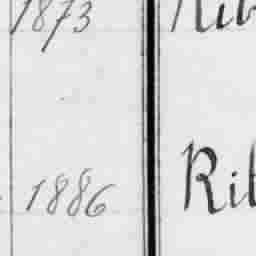 1873 Rib
1886 Rib